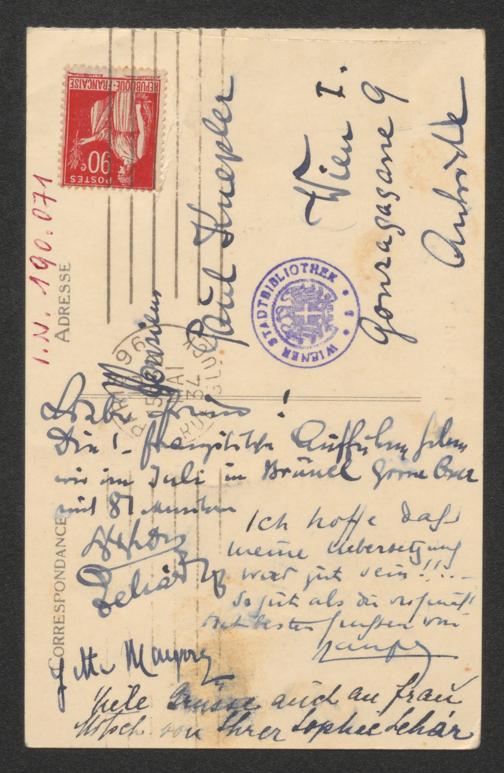 REPUBLIQUE·FRANÇAISE
90c
POSTES
I.N. 190.071
ADRESSE
Monsieur
Paul Knepler
Wien I.
Gonzagagasse 9
Autriche
WIENER STADTBIBLIOTHEK
PARIS 96
15
MAI
34
RUE GLUCK
Lieber Freund!
Die 1. französische Aufführung
wir im Juli in Brüssel
mit 87
Lehár
CORRESPONDANCE
Ich hoffe dass
meine Uebersetzung
wird gut sein!!!...
So gut als die
besten von
Jette Mauprey
Viele Grüsse auch an Frau
von Ihrer Sophie Lehár